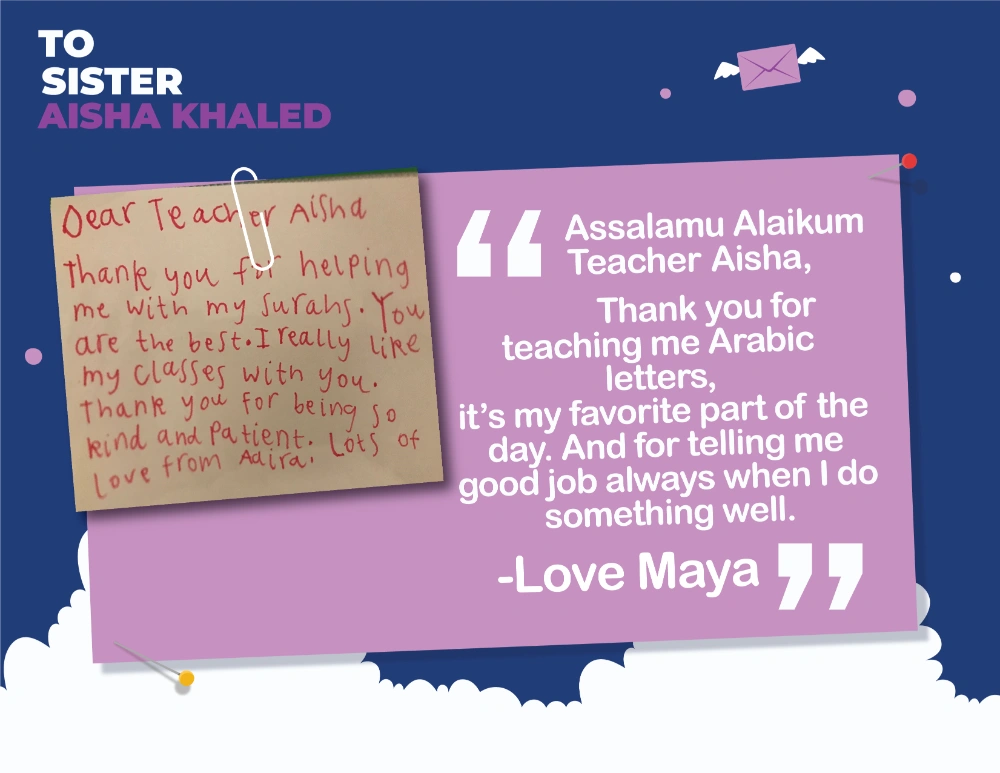 TO
SISTER
AISHA KHALED
Dear Teacher Aisha
Thank you for helping
me with my Surahs. You
are the best. I really like
my classes with you.
Thank you for being so
kind and Patient. Lots of
Love from Adira.
“ Assalamu Alaikum
Teacher Aisha,
Thank you for
teaching me Arabic
letters,
it’s my favorite part of the
day. And for telling me
good job always when I do
something well.
-Love Maya ”